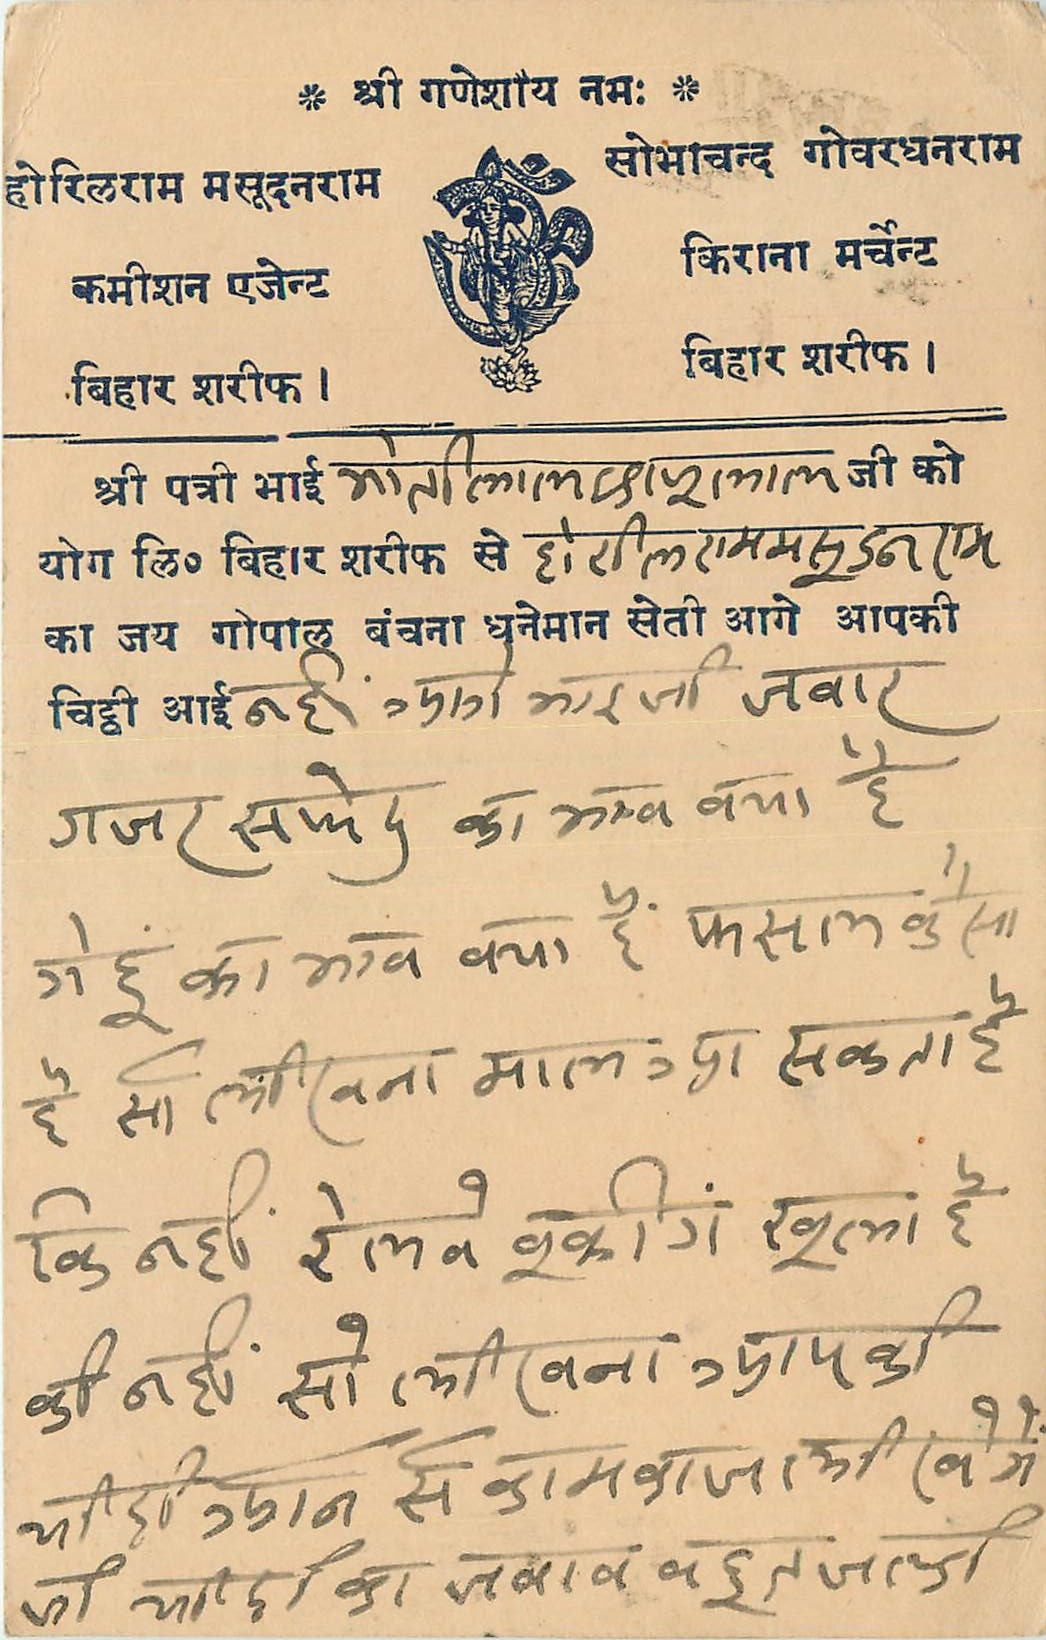 * श्री गणेशाय नमः *
होरिलराम मसूदनराम
कमीशन एजेन्ट
बिहार शरीफ ।
सोभाचन्द गोवरधनराम
किराना मर्चेन्ट
बिहार शरीफ ।
श्री पत्री भाई मोतीलाल कपूरलाल जी को
योग लि० बिहार शरीफ से होरीलराममसूदनराम
का जय गोपाल बंचना धनेमान सेती आगे आपकी
चिट्ठी आई नहीं आगे भाइजी जवार
गजर सफेद का भाव क्या है
गेहूं का भाव क्या हैं फसाल कैसा
है सो लीखना माल आ सकता है
कि नहीं रेलवे बूकींग खूला है
की नहीं सो लीखना आपकी
चीठी आने से कामकाज लीखेगें
जी चीठी का जवाब बहूत जल्दी